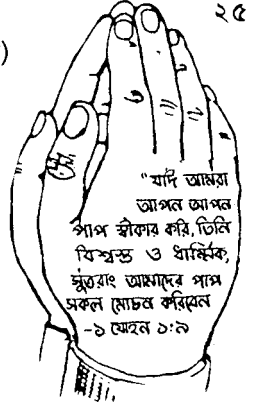 ২৫
)
"যদি আমরা
আপন আপন
পাপ স্বীকার করি, তিনি
বিশ্বস্ত ও ধার্ম্মিক,
সুতরাং আমাদের পাপ
সকল মোচন করিবেন
-১ যোহন ১:৯